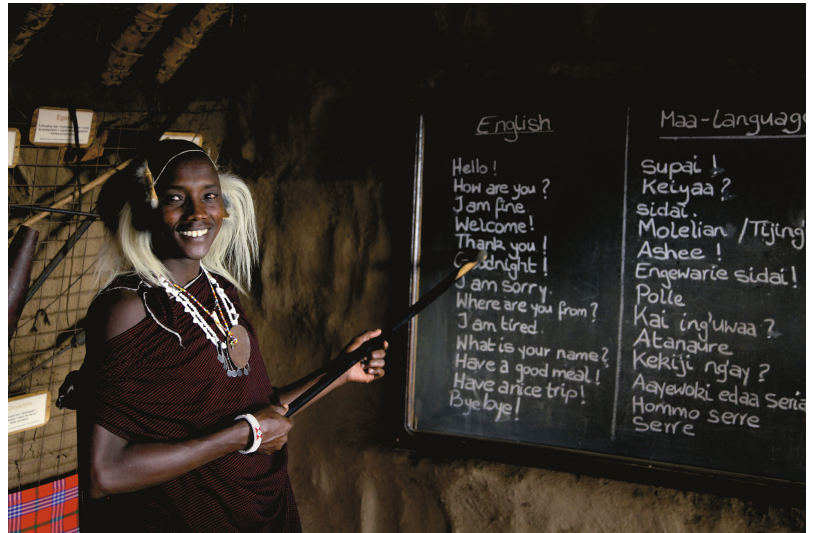 English
Hello !
How are you ?
I am fine
Welcome!
Thank you !
Goodnight !
I am sorry.
Where are you from ?
I am tired.
What is your name?
Have a good meal !
Have a nice trip!
Bye bye!
Maa-language
Supai !
Keiyaa ?
sidai.
Molelian / Tijing'
Ashee !
Engewarie sidai!
Polle
Kai ing'uwaa ?
Atanaure
Kekiji ngay ?
Aayewoki edaa seria
Hommo serre
serre